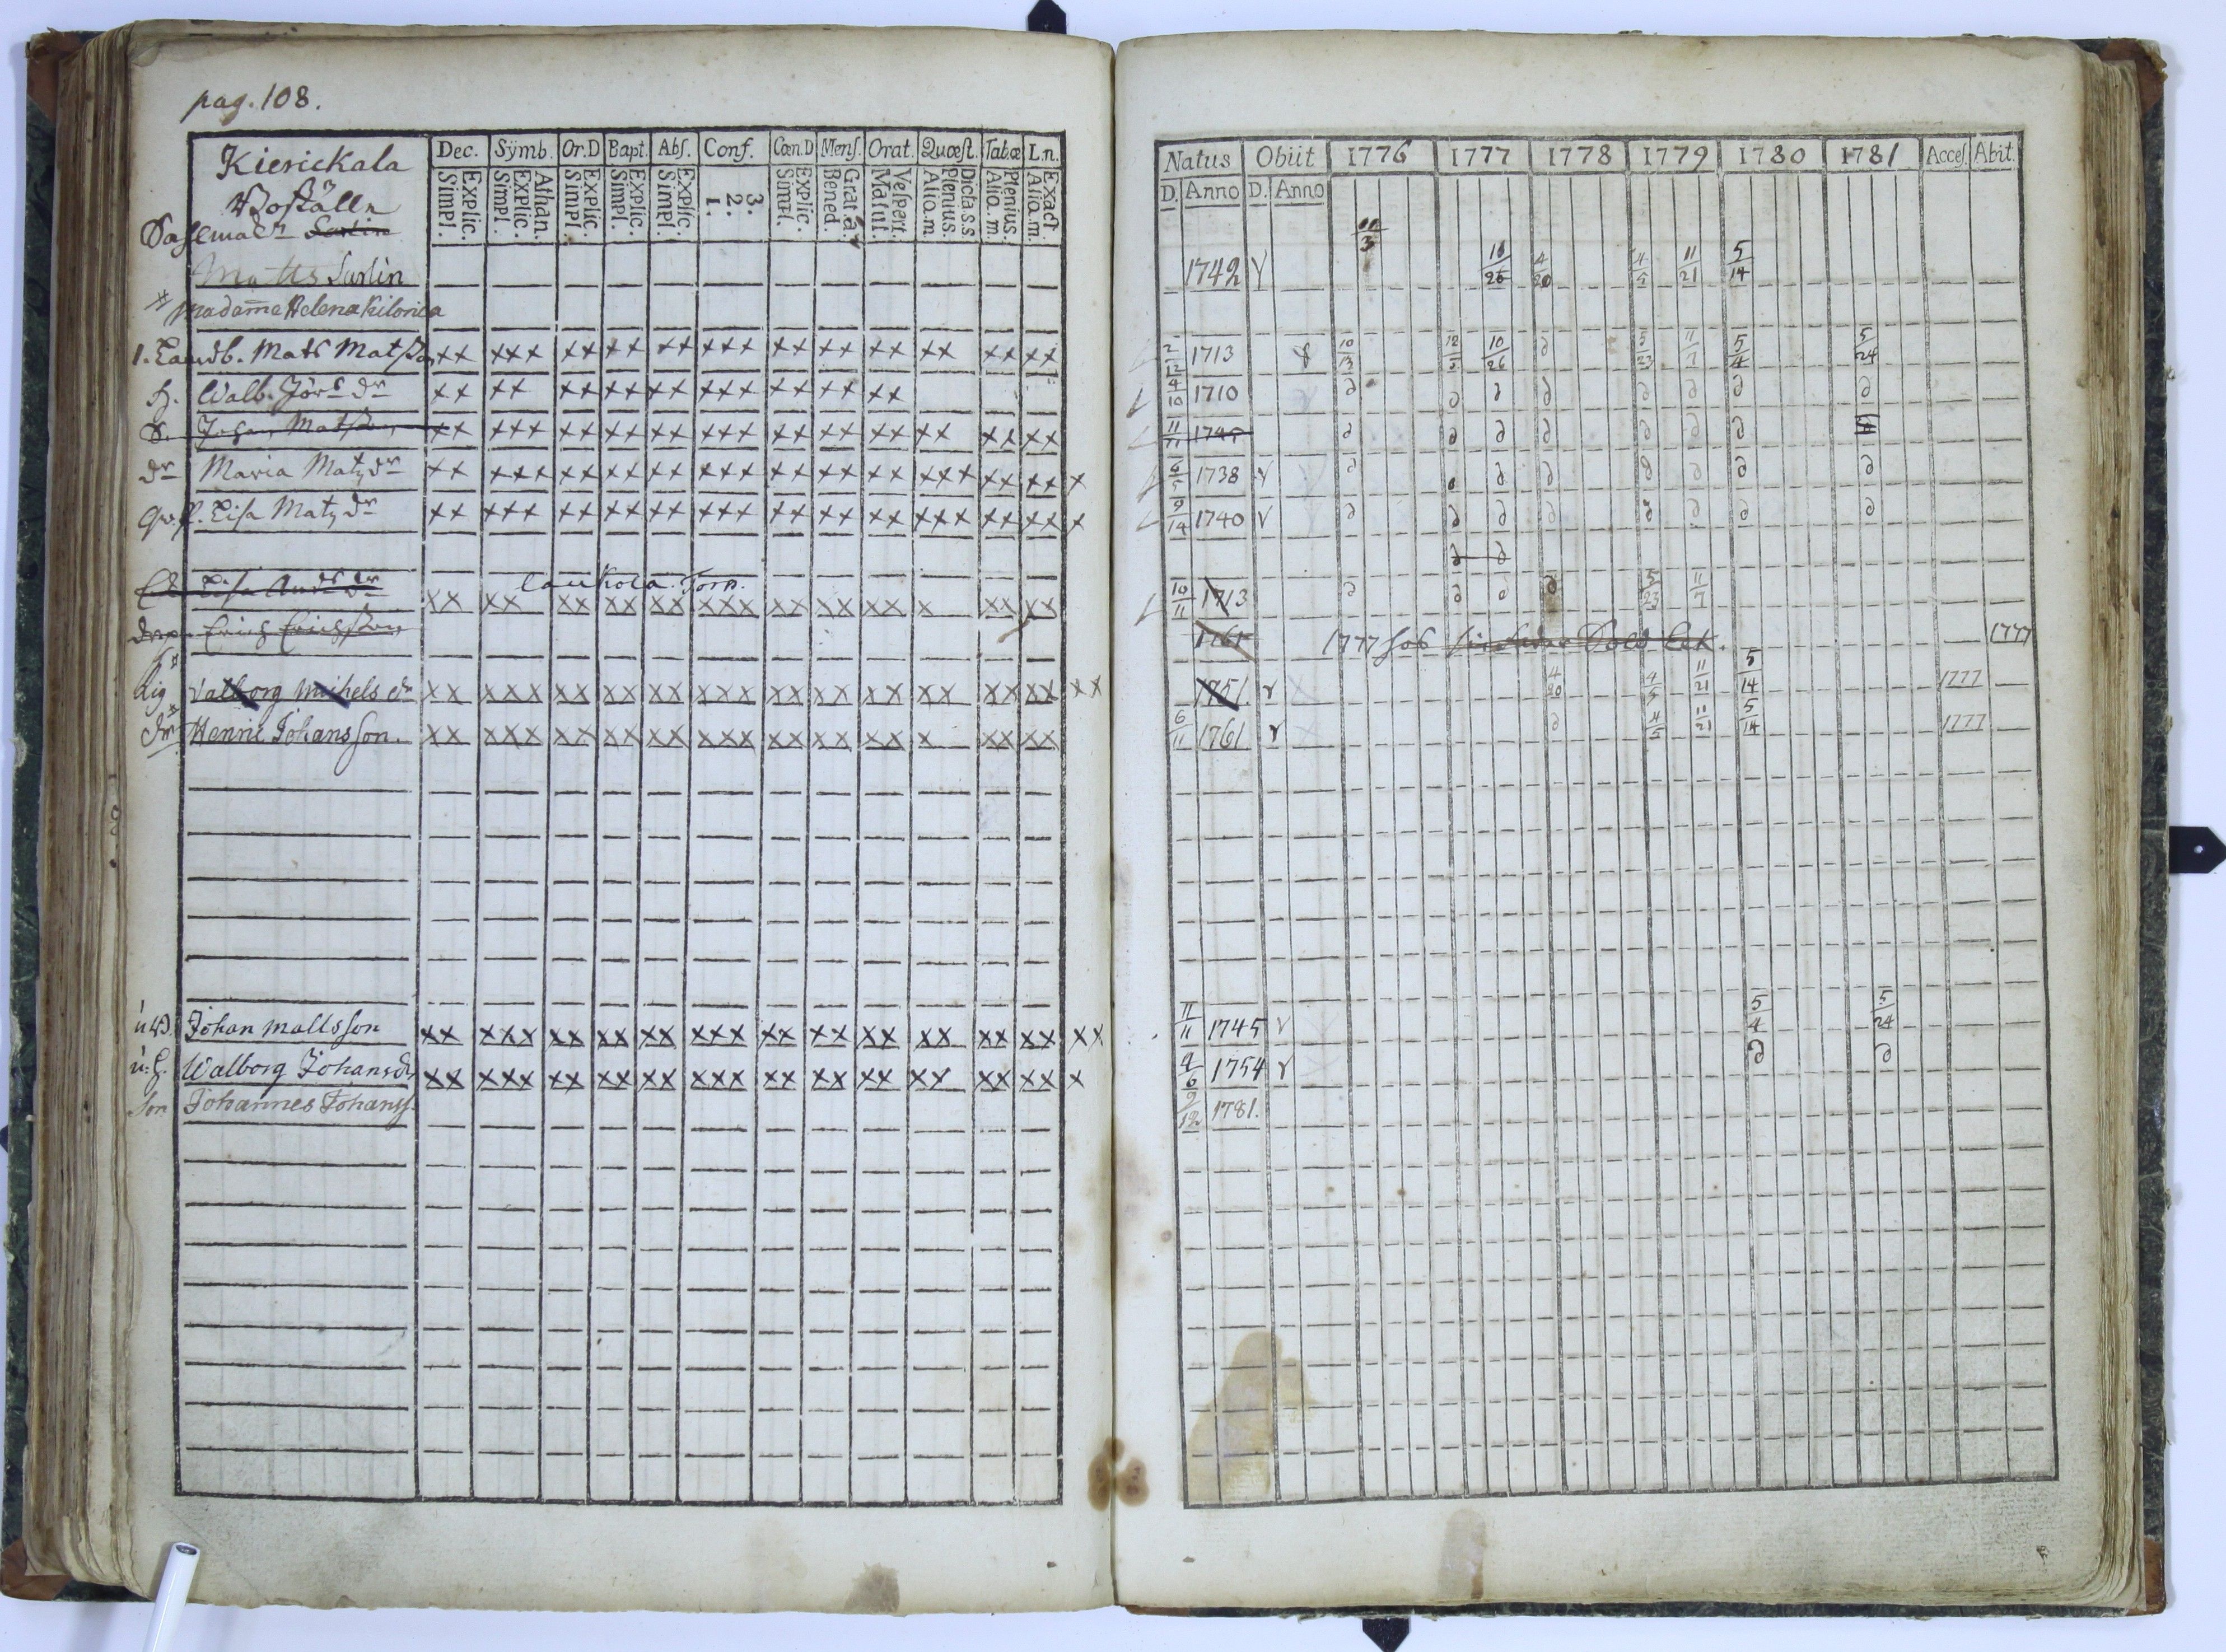 pag. 108.
Kierickala
Boställn
Dec. Sÿmb. Or.D Bapt. Abs. Conf. Cœn.D Mens. Orat. Quœst. Tab.œ L.n.
Simpl. Explic. Simpl. Explic. Athan. Simpl. Explic. Simpl. Explic. Simpl. Explic. 1. 2. 3. Simpl. Explic. Bened. Grat.a. Matut. Vespert. Alio.m. Plenius. Dicta.s.s. Alio.m. Plenius. Alio.m. Exact.
Natus Obiit 1776 1777 1778 1779 1780 1781 Acces. Abit.
D. Anno D. Anno
11/3
Sarlin
Matts Sarlin 1742 10/26 4/20 4/5 11/21 5/14
Madame Helena Kilonica
1. Landb. Mats Matsson xx xxx xx xx xx xxx xx xx xx xx xx xx 2/12 1713 10/13 12/3 10/26 ∂ 5/23 11/7 5/4 5/24
h. Walb. Jörs dr xx xx xx xx xx xxx xx xx xx 4/10 1710 ∂ ∂ ∂ ∂ ∂ ∂ ∂ ∂
S. Johan Matsson xx xxx xx xx xx xxx xx xx xx xx xx xx 11/11 1745 ∂ ∂ ∂ ∂ ∂ ∂ ∂
dr Maria Matz dr xx xxx xx xx xx xxx xx xx xx xxx xx xx x 6/5 1738 ∂ ∂ ∂ ∂ ∂ ∂ ∂
Lisa Matz dr xx xxx xx xx xx xxx xx xx xx xxx xx xx x 9/14 1740 ∂ ∂ ∂ ∂ ∂ ∂ ∂ ∂
∂ ∂
Lisa Anders dr laukola Torp. xx xx xx xx xx xxx xx xx xx x xx xx 10/11 1713 ∂ ∂ ∂ ∂ 5/23 11/7
Erich Erichsson 1761 1777 1777
Pig Valborg Michels dr xx xxx xx xx xx xxx xx xx xx xx xx xx xx 1751 4/20 4/5 11/21 5/14 1777
dr Henric Johansson. xx xxx xx xx xx xxx xx xx xx x xx xx 6/11 1761 ∂ 4/5 11/21 5/14 1777
Johan Mattsson xx xxx xx xx xx xxx xx xx xx xx xx xx xx 11/11 1745 5/4 5/24
u. h. Walborg Johansdr xx xxx xx xx xx xxx xx xx xx xx xx xx x 4/6 1754 ∂ ∂
Son Johannes Johanss. 9/12 1781.